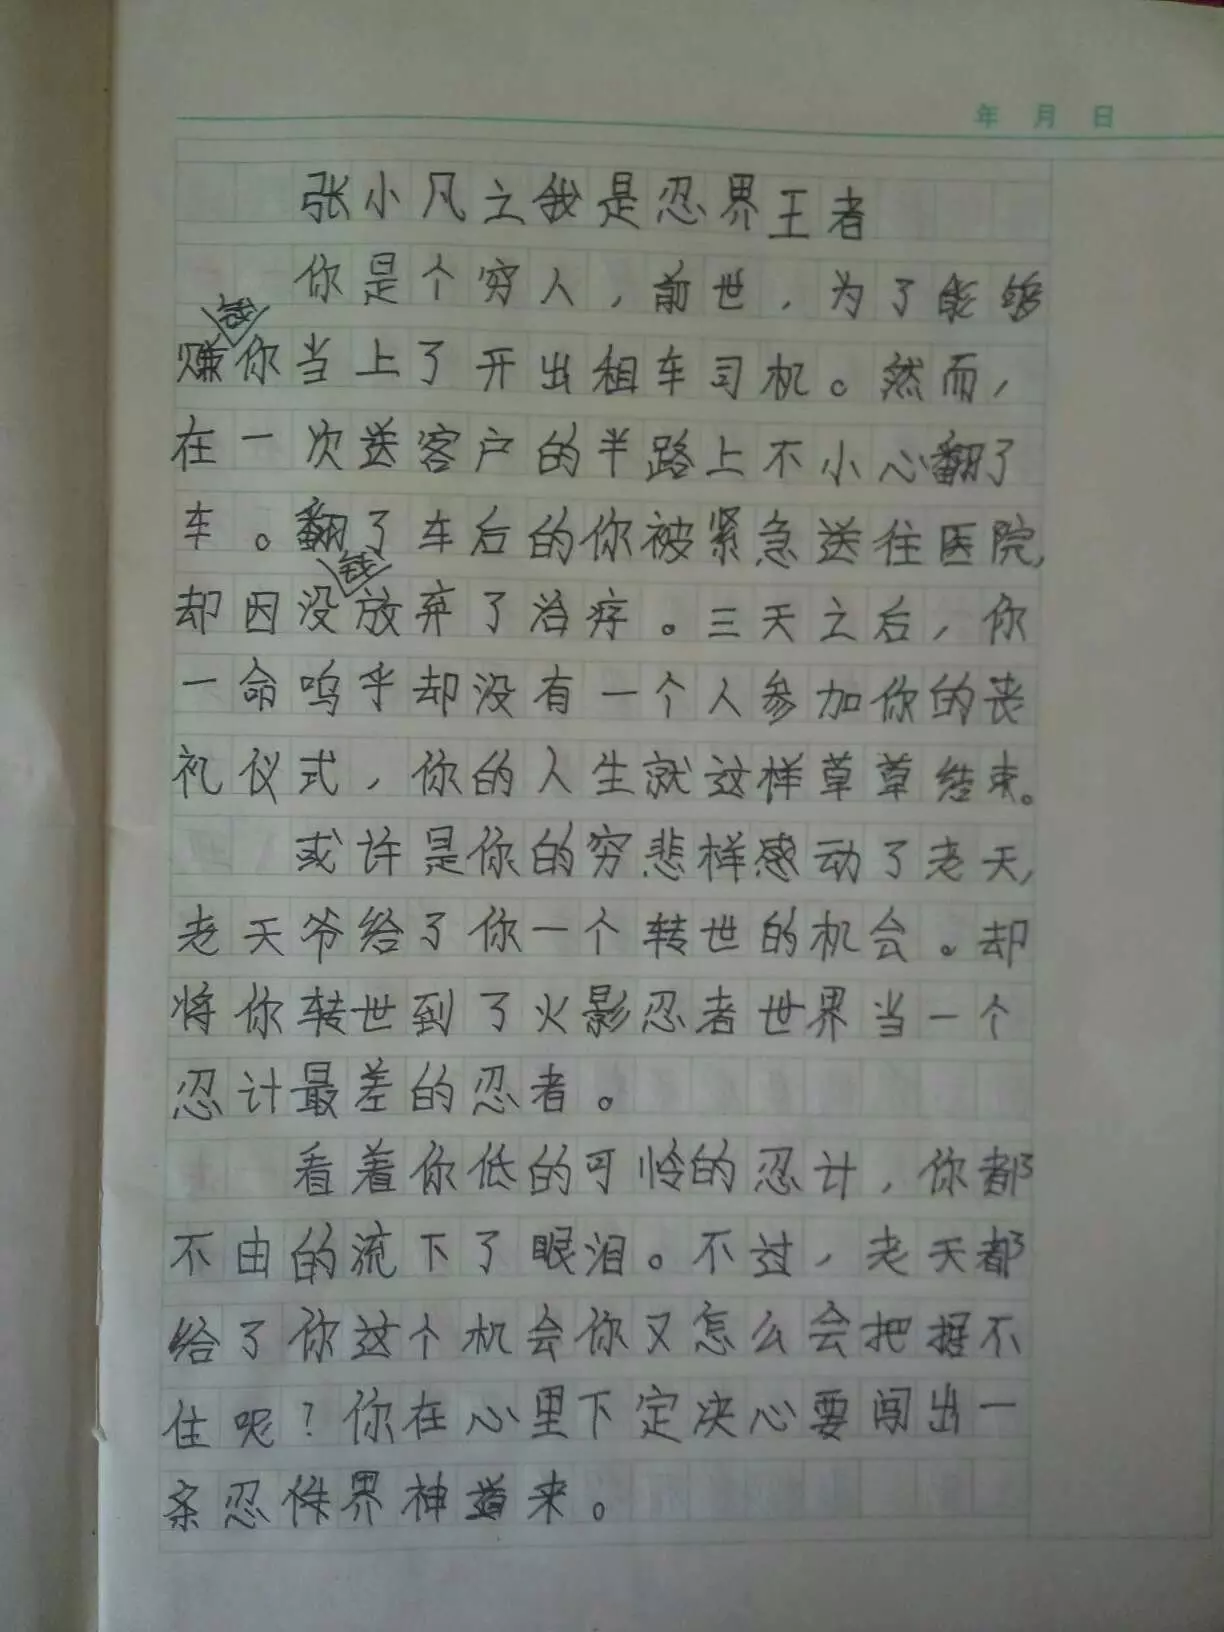 年 月 日
张小凡之我是忍界王者
你是个穷人，前世，为了能够
赚钱你当上了开出租车司机。然而，
在一次送客户的半路上不小心翻了
车。翻了车后的你被紧急送往医院，
却因没钱放弃了治疗。三天之后，你
一命呜乎却没有一个人参加你的丧
礼仪式，你的人生就这样草草结束。
或许是你的穷悲样感动了老天，
老天爷给了你一个转世的机会。却
将你转世到了火影忍者世界当一个
忍计最差的忍者。
看着你低的可怜的忍计，你都
不由的流下了眼泪。不过，老天都
给了你这个机会你又怎么会把握不
住呢？你在心里下定决心要闯出一
条忍侏界神道来。